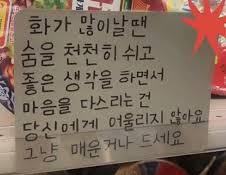 화가 많이날땐
숨을 천천히 쉬고
좋은 생각을 하면서
마음을 다스리는 건
당신에게 어울리지 않아요
그냥 매운거나 드세요